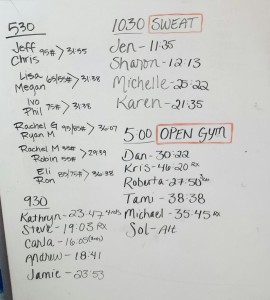 530
Jeff 95# > 31:55
Chris
Lisa 65/55# > 31:38
Megan
Ivo 75# > 31:38
Phil
Rachel G 95/65# > 36:07
Ryan M
Rachel M 55# > 29:39
Robin 55#
Eli 85/75# > 36:38
Ron
930
Kathryn - 23:47
Steve - 19:03 RX
Carla - 16:05
Andrew - 18:41
Jamie - 23:53
1030 SWEAT
Jen - 11:35
Sharon - 12:13
Michelle - 25:22
Karen - 21:35
5:00 OPEN GYM
Dan - 30:22
Kris - 46:20 RX
Roberta - 27:50
Tami - 38:38
Michael - 35:45 RX
Sol - Alt